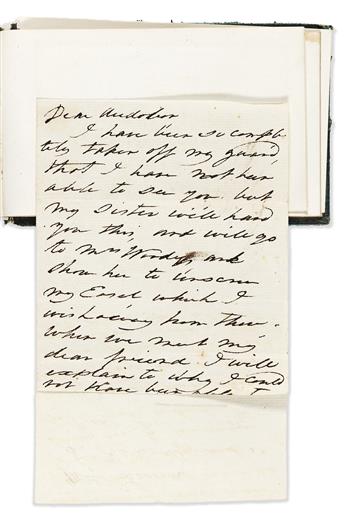 Dear Audobon
I have been so comple
tely taken off my guard,
that I have not been
able to see you. but
my sister will hand
you this, and will go
to Mrs and
show her to unscrew
my Easel which I
wish away from there.
when we meet my
dear friend. I will
explain to why I could
not have been able